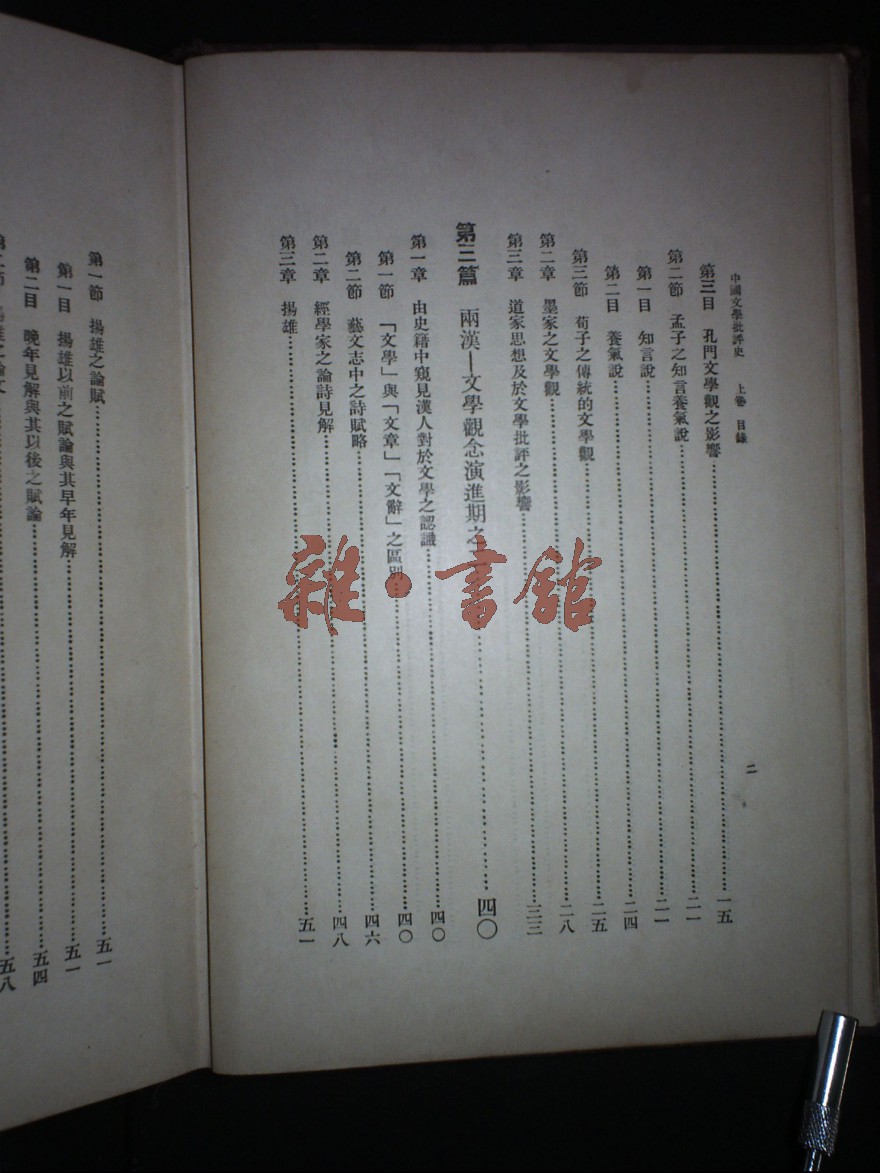 中國文學批評史 上卷 目錄
二
第三目 孔門文學觀之影響……一五
第二節 孟子之知言養氣說……二一
第一目 知言說……二一
第二目 養氣說……二四
第三節 荀子之傳統的文學觀……二五
第二章 墨家之文學觀……二八
第三章 道家思想及於文學批評之影響……三三
第三篇 兩漢—文學觀念演進期之……四〇
第一章 由史籍中窺見漢人對於文學之認識……四〇
第一節 「文學」與「文章」「文辭」之區別……四〇
第二節 藝文志中之詩賦略……四六
第二章 經學家之論詩見解……四八
第三章 揚雄……五一
第一節 揚雄之論賦……五一
第一目 揚雄以前之賦論與其早年見解……五一
第二目 晚年見解與其以後之賦論……五四
第二節 揚雄之論文……五八
雜·書館